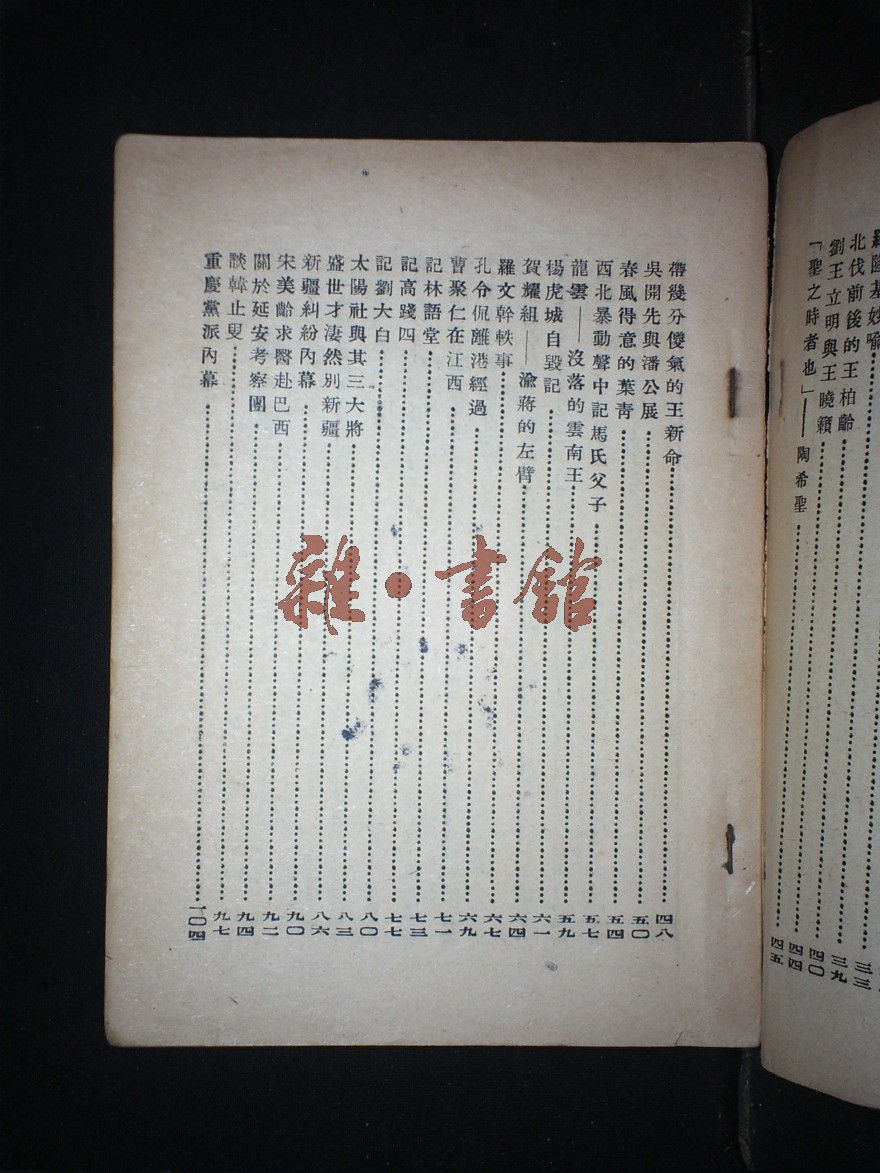 羅隆基妙喻
三九
北伐前後的王柏齡
四〇
劉王立明與王曉籟
四四
「聖之時者也」——陶希聖
四五
三三
帶幾分傻氣的王新命 四八
吳開先與潘公展 五〇
春風得意的葉青 五四
西北暴動聲中記馬氏父子 五七
龍雲——沒落的雲南王 五九
楊虎城自毀記 六一
賀耀組——渝蔣的左臂 六四
羅文幹軼事 六七
孔令侃離港經過 六九
曹聚仁在江西 七一
記林語堂 七三
記高踐四 七七
記劉大白 八〇
太陽社與其三大將 八三
盛世才淒然別新疆 八六
新疆糾紛內幕 九〇
宋美齡求醫赴巴西 九二
關於延安考察團 九四
談韓止叟 九七
重慶黨派內幕 一〇四
雜·書館